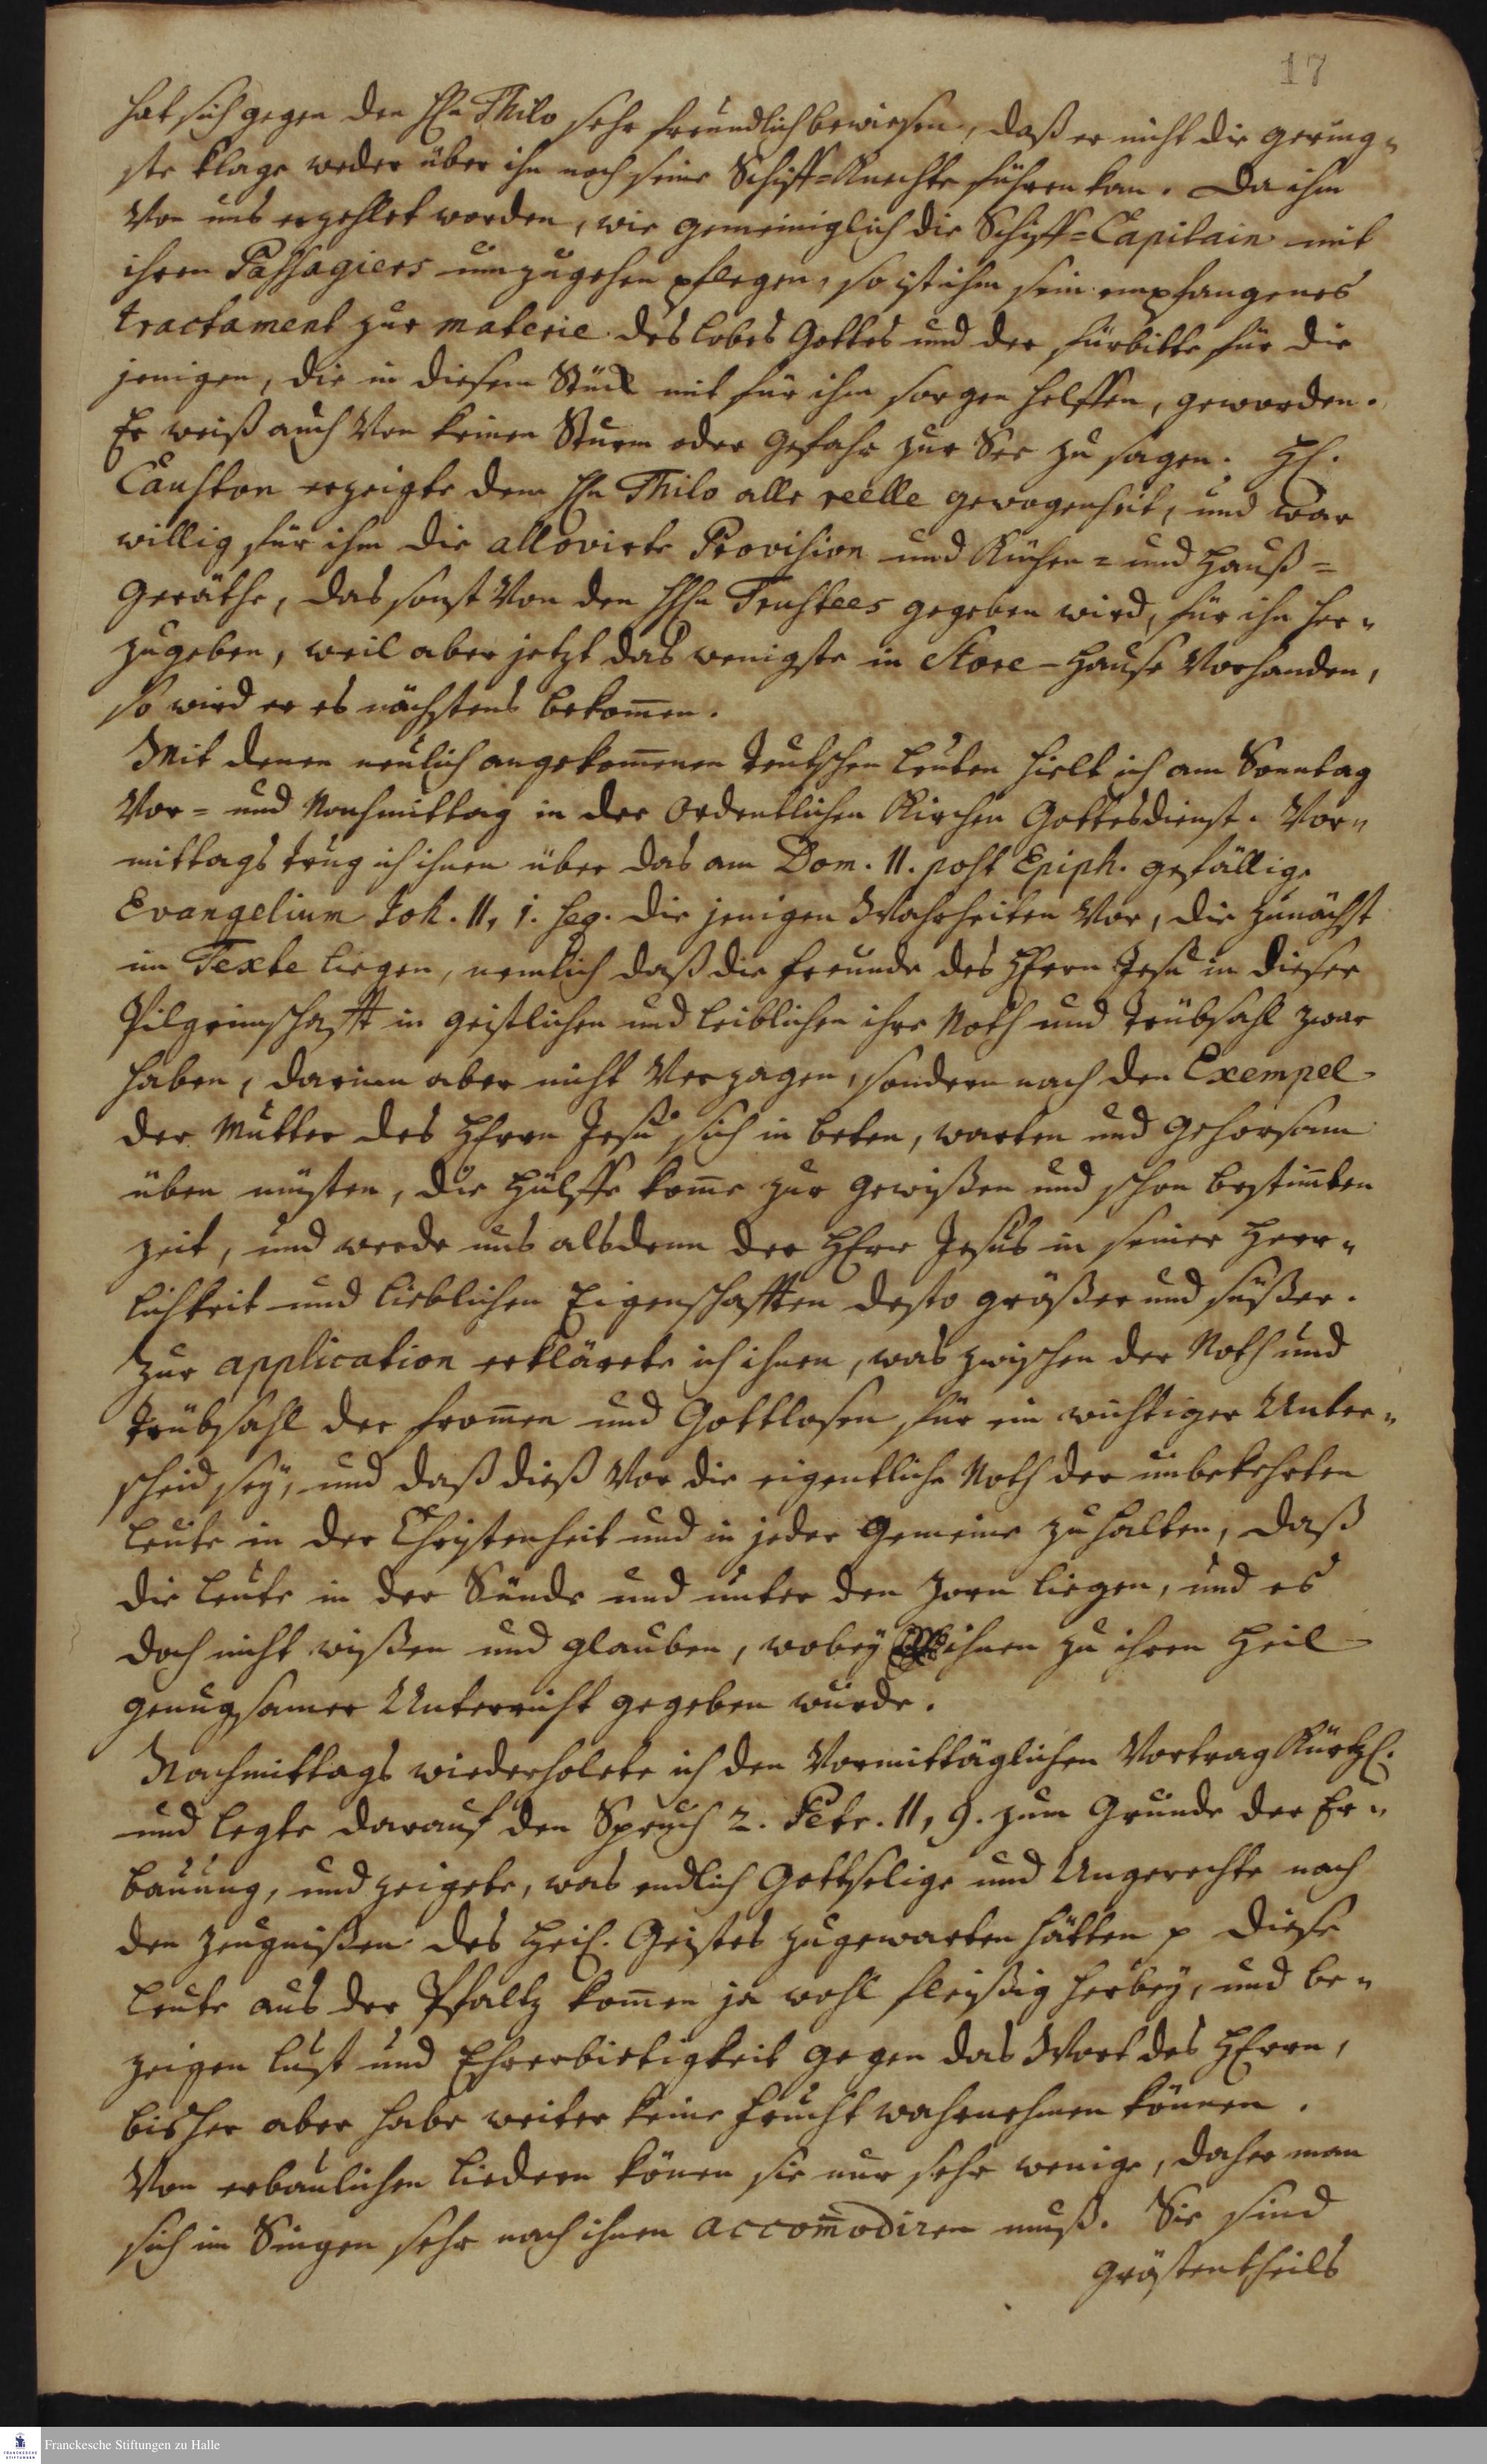 17
hat sich gegen den Hn Thilo sehr freundlich bewiesen, daß er nicht die gering„
ste klage weder über ihn noch seine Schiff=Knechte führen kan. Da ihm
Von uns erzehlet worden, wie gemeiniglich die Schiff=Capitain mit
ihren Passagiers umzugehen pflegen, so ist ihm sein empfangenes
tractament zur materie des lobes Gottes und der fürbitte für die
jenigen, die in diesem Stück mit für ihm sorgen helffen, geworden.
Er weiß auch Von keinen Sturm oder Gefahr zur See zu sagen. H.
Causton erzeigte dem Hn Thilo alle reelle gewogenheit, und war
willig für ihm die allovirte Provision und Küchen= und Hauß=
Geräthe, das sonst Von den HHn Trustees gegeben wird, für ihn her„
zugeben, weil aber jetzt das wenigste in Store-Hause Vorhanden,
so wird er es nächstens bekom̄en.
Mit denen neulich angekom̄enen Teutschen Leuten hielt ich am Sonntag
Vor= und Nachmittag in der Ordentlichen Kirchen Gottesdienst. Vor„
mittags trug ich ihnen über das am Dom. II. post Epiph. gefällige
Evangelium Joh. II, 1. seq. die jenigen Wahrheiten Vor, die zunächst
im Texte liegen, nemlich daß die freunde des HErrn Jesu in dieser
Pilgrimschafft in geistlichen und leiblichen ihre Noth und Trübsahl zwar
haben, darinn aber nicht Verzagen, sondern nach den Exempel
der Mutter des HErrn Jesu sich in beten, warten und Gehorsam
üben müsten, die Hülffe kom̄e zur gewißen und schon bestim̄ten
zeit, und werde uns alsdenn der HErr Jesus in seiner Herr„
lichkeit und lieblichen Eigenschafften desto größer und süßer.
Zur application erklärete ich ihnen, was zwischen der Noth und
Trübsahl der from̄en und Gottlosen für ein wichtiger Unter„
scheid sey, und daß dieß Vor die eigentliche Noth der unbekehrten
Leute in der Christenheit und in jeder Gemeine zu halten, daß
die Leute in der Sünde und unter den Zorn liegen, und es
doch nicht wißen und glauben, wobey ihnen zu ihren Heil
genugsamer Unterricht gegeben wurde.
Nachmittags wiederholete ich den Vormittäglichen Vortrag Kürtzl.
und legte darauf den Spruch 2. Petr. II, 9. zum Grunde der Er„
bauung, und zeigete, was endlich Gottselige und Ungerechte nach
den Zeugnißen des Heil. Geistes zugewarten hätten p Diese
Leute aus der Pfaltz kom̄en ja wohl fleißig herbey, und be„
zeigen Lust und Ehrerbietigkeit gegen das Wort des HErrn,
bisher aber habe weiter keine frucht wahrnehmen können.
Von erbaulichen Liedern kön̄en sie nur sehr wenige, daher man
sich im Singen sehr nach ihnen accom̄odiren muß. Sie sind
gröstentheils
Franckesche Stiftungen zu Halle